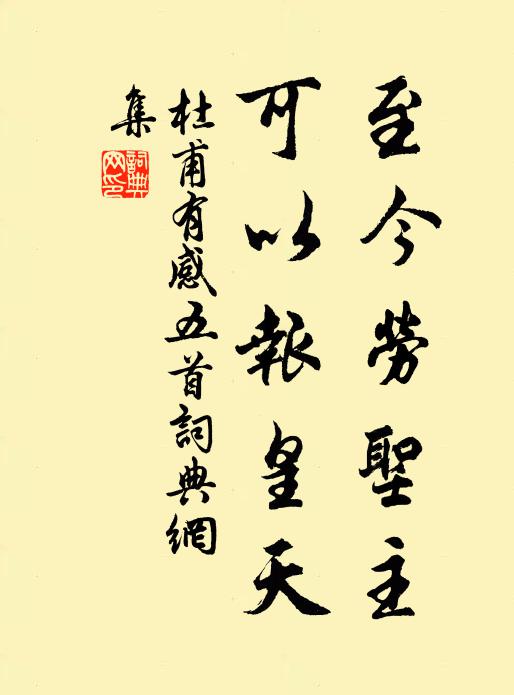 至今勞聖主
可以報皇天
杜甫有感五首詞典網
集
詞典
网印